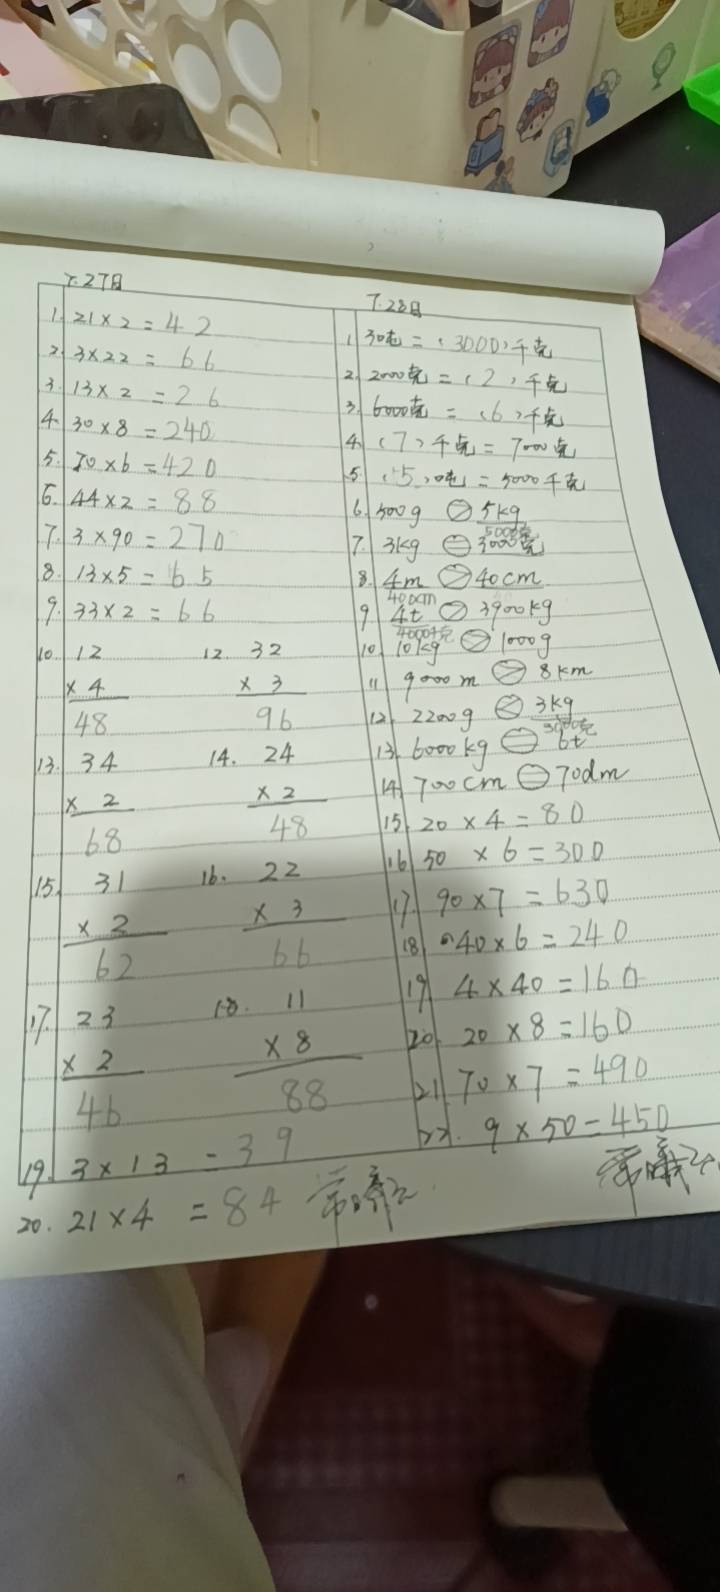 7.27日
1. 21×2=42
2. 3×22=66
3. 13×2=26
4. 30×8=240
5. 70×6=420
6. 44×2=88
7. 3×90=270
8. 13×5=65
9. 33×2=66
10. 12 12. 32
×4 ×3
48 96
13. 34 14. 24
×2 ×2
68 48
15. 31 16. 22
×2 ×3
62 66
17. 23 18. 11
×2 ×8
46 88
19. 3×13=39
20. 21×4=84
7.28日
1 30吨=(3000)千克
2. 2000克=(2)千克
3. 6000克=(6)千克
4. (7)千克=7000克
5. (5)吨=5000千克
6. 500g 5kg
5000克
7. 3kg = 3000克
8. 4m > 40cm
400cm
9 4t > 3900kg
4000千克
10. 10kg > 1000g
11 9000m > 8km
12. 2200g < 3kg
3000克
13. 6000kg = 6t
14. 700cm = 70dm
15. 20×4=80
16. 50×6=300
17. 90×7=630
18. 40×6=240
19. 4×40=160
20. 20×8=160
21. 70×7=490
22. 9×50=450